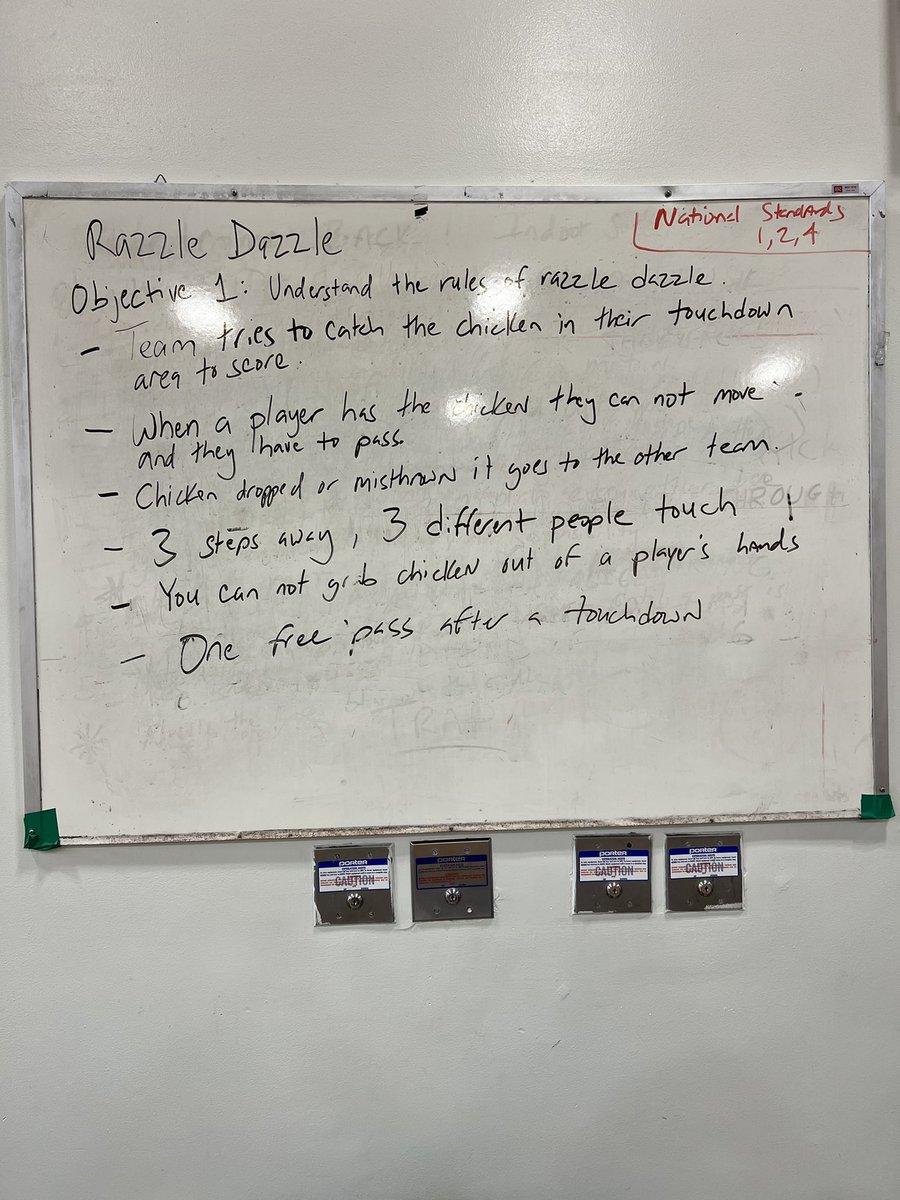 Razzle Dazzle
National Standards
1, 2, 4
Objective 1: Understand the rules of razzle dazzle.
- Team tries to catch the chicken in their touchdown
area to score.
- When a player has the chicken they can not move
and they have to pass.
- Chicken dropped or misthrown it goes to the other team.
- 3 steps away, 3 different people touch !
- You can not grab chicken out of a player's hands
- One free pass after a touchdown
porter
CAUTION
porter
CAUTION
porter
CAUTION
porter
CAUTION